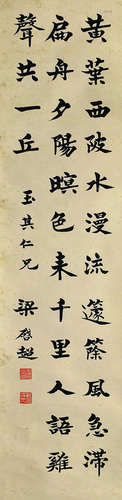 黃葉西陂水漫流蘧篨風急滯
扁舟夕陽暝色来千里人語雞
聲共一丘
玉其仁兄
梁啟超